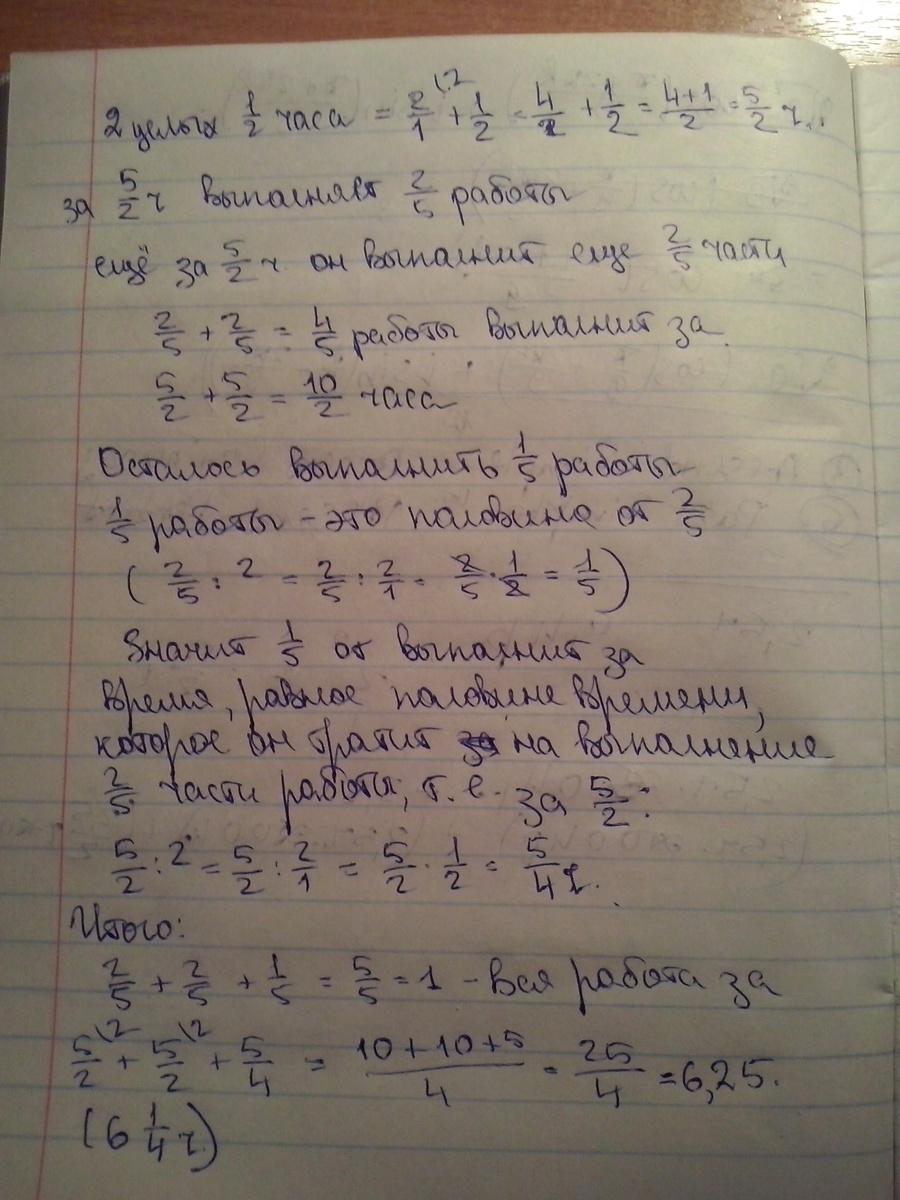 2 целых 1/2 часа = 2/1 \2 + 1/2 = 4/2 + 1/2 = 4+1/2 = 5/2 ч.
за 5/2 ч выполняет 2/5 работы
ещё за 5/2 ч он выполнит еще 2/5 части
2/5 + 2/5 = 4/5 работы выполнит за
5/2 + 5/2 = 10/2 часа
Осталось выполнить 1/5 работы
1/5 работы - это половина от 2/5
( 2/5 : 2 = 2/5 : 2/1 = 2/5 · 1/2 = 1/5 )
Значит 1/5 он выполнит за
время, равное половине времени,
которое он тратит на выполнение
2/5 части работы, т.е. за 5/2 :
5/2 : 2 = 5/2 : 2/1 = 5/2 · 1/2 = 5/4 ч.
Итого:
2/5 + 2/5 + 1/5 = 5/5 = 1 - вся работа за
5/2 \2 + 5/2 \2 + 5/4 = 10+10+5/4 = 25/4 = 6,25.
(6 1/4 ч)